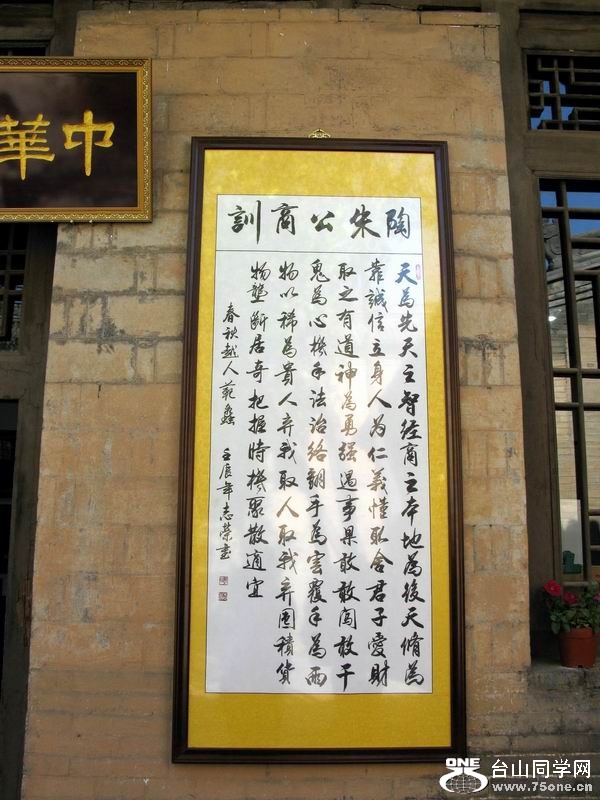 中華
陶朱公商訓
天為先天之智经商之本地為後天脩為
靠誠信立身人为仁義懂取舍君子愛財
取之有道神為勇强遇事果敢敢闖敢干
鬼為心機手法治络翻手為雲覆手為雨
物以稀為貴人弃我取人取我弃囤積貨
物壟断居奇把握時機聚散適宜
春秋越人范蠡 壬辰年志榮書
ONE 台山同学网
www.75one.cn